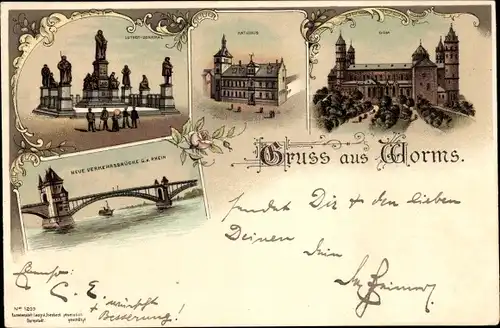 LUTHER-DENKMAL
RATHAUS
DOM
Gruss aus Worms.
NEUE VERKEHRSBRÜCKE Ü. D. RHEIN
sendet Dir & den lieben
Deinen Dein
C. E.
+ wünscht
Besserung!
No 1205